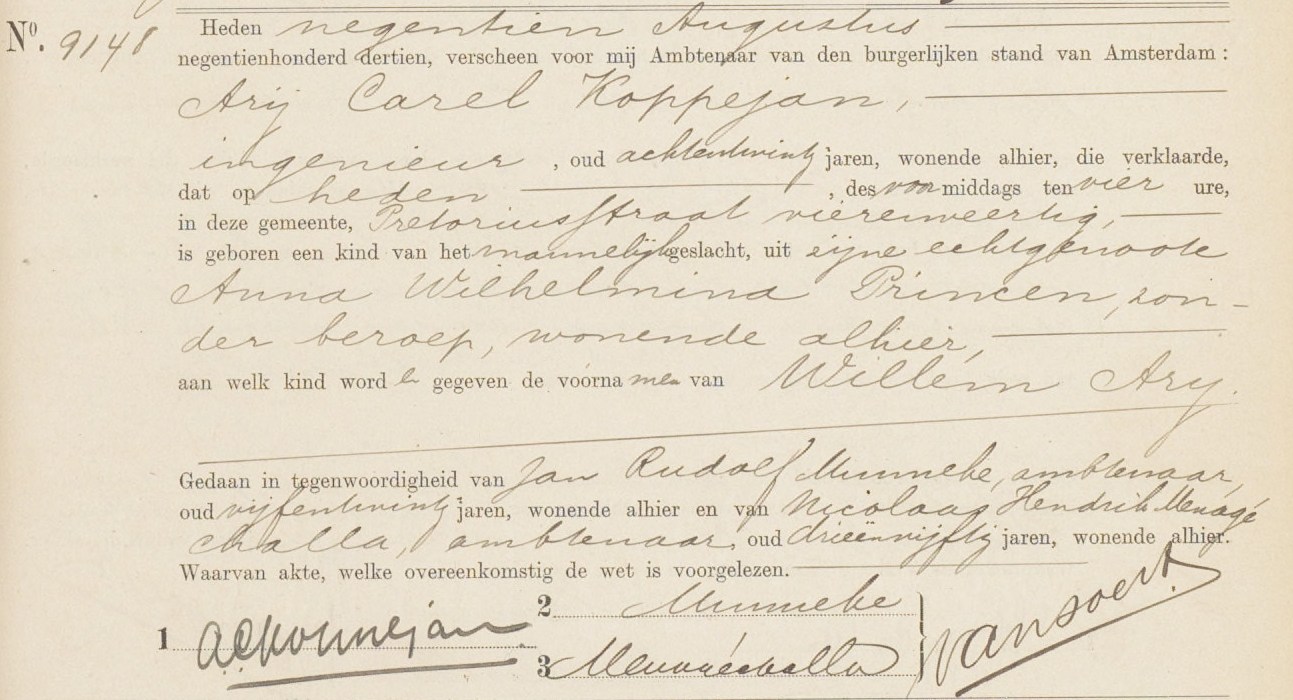 Nº. 9148
Heden negentien Augustus
negentienhonderd dertien, verscheen voor mij Ambtenaar van den burgerlijken stand van Amsterdam :
Arij Carel Koppejan,
ingenieur, oud achtentwintig jaren, wonende alhier, die verklaarde,
dat op heden, des voormiddags ten vier ure,
in deze gemeente, Pretoriusstraat vierenveertig,
is geboren een kind van het mannelijk geslacht, uit zijne echtgenoote
Anna Wilhelmina Princen, zon-
der beroep, wonende alhier,
aan welk kind worden gegeven de voornamen van Willem Ary.
Gedaan in tegenwoordigheid van Jan Rudolf Munneke, ambtenaar,
oud vijfentwintig jaren, wonende alhier en van Nicolaas Hendrik Menagé
Challa, ambtenaar, oud drieënvijftig jaren, wonende alhier.
Waarvan akte, welke overeenkomstig de wet is voorgelezen.
1 ACKoppejan
2 Munneke
3 Menagéchalla